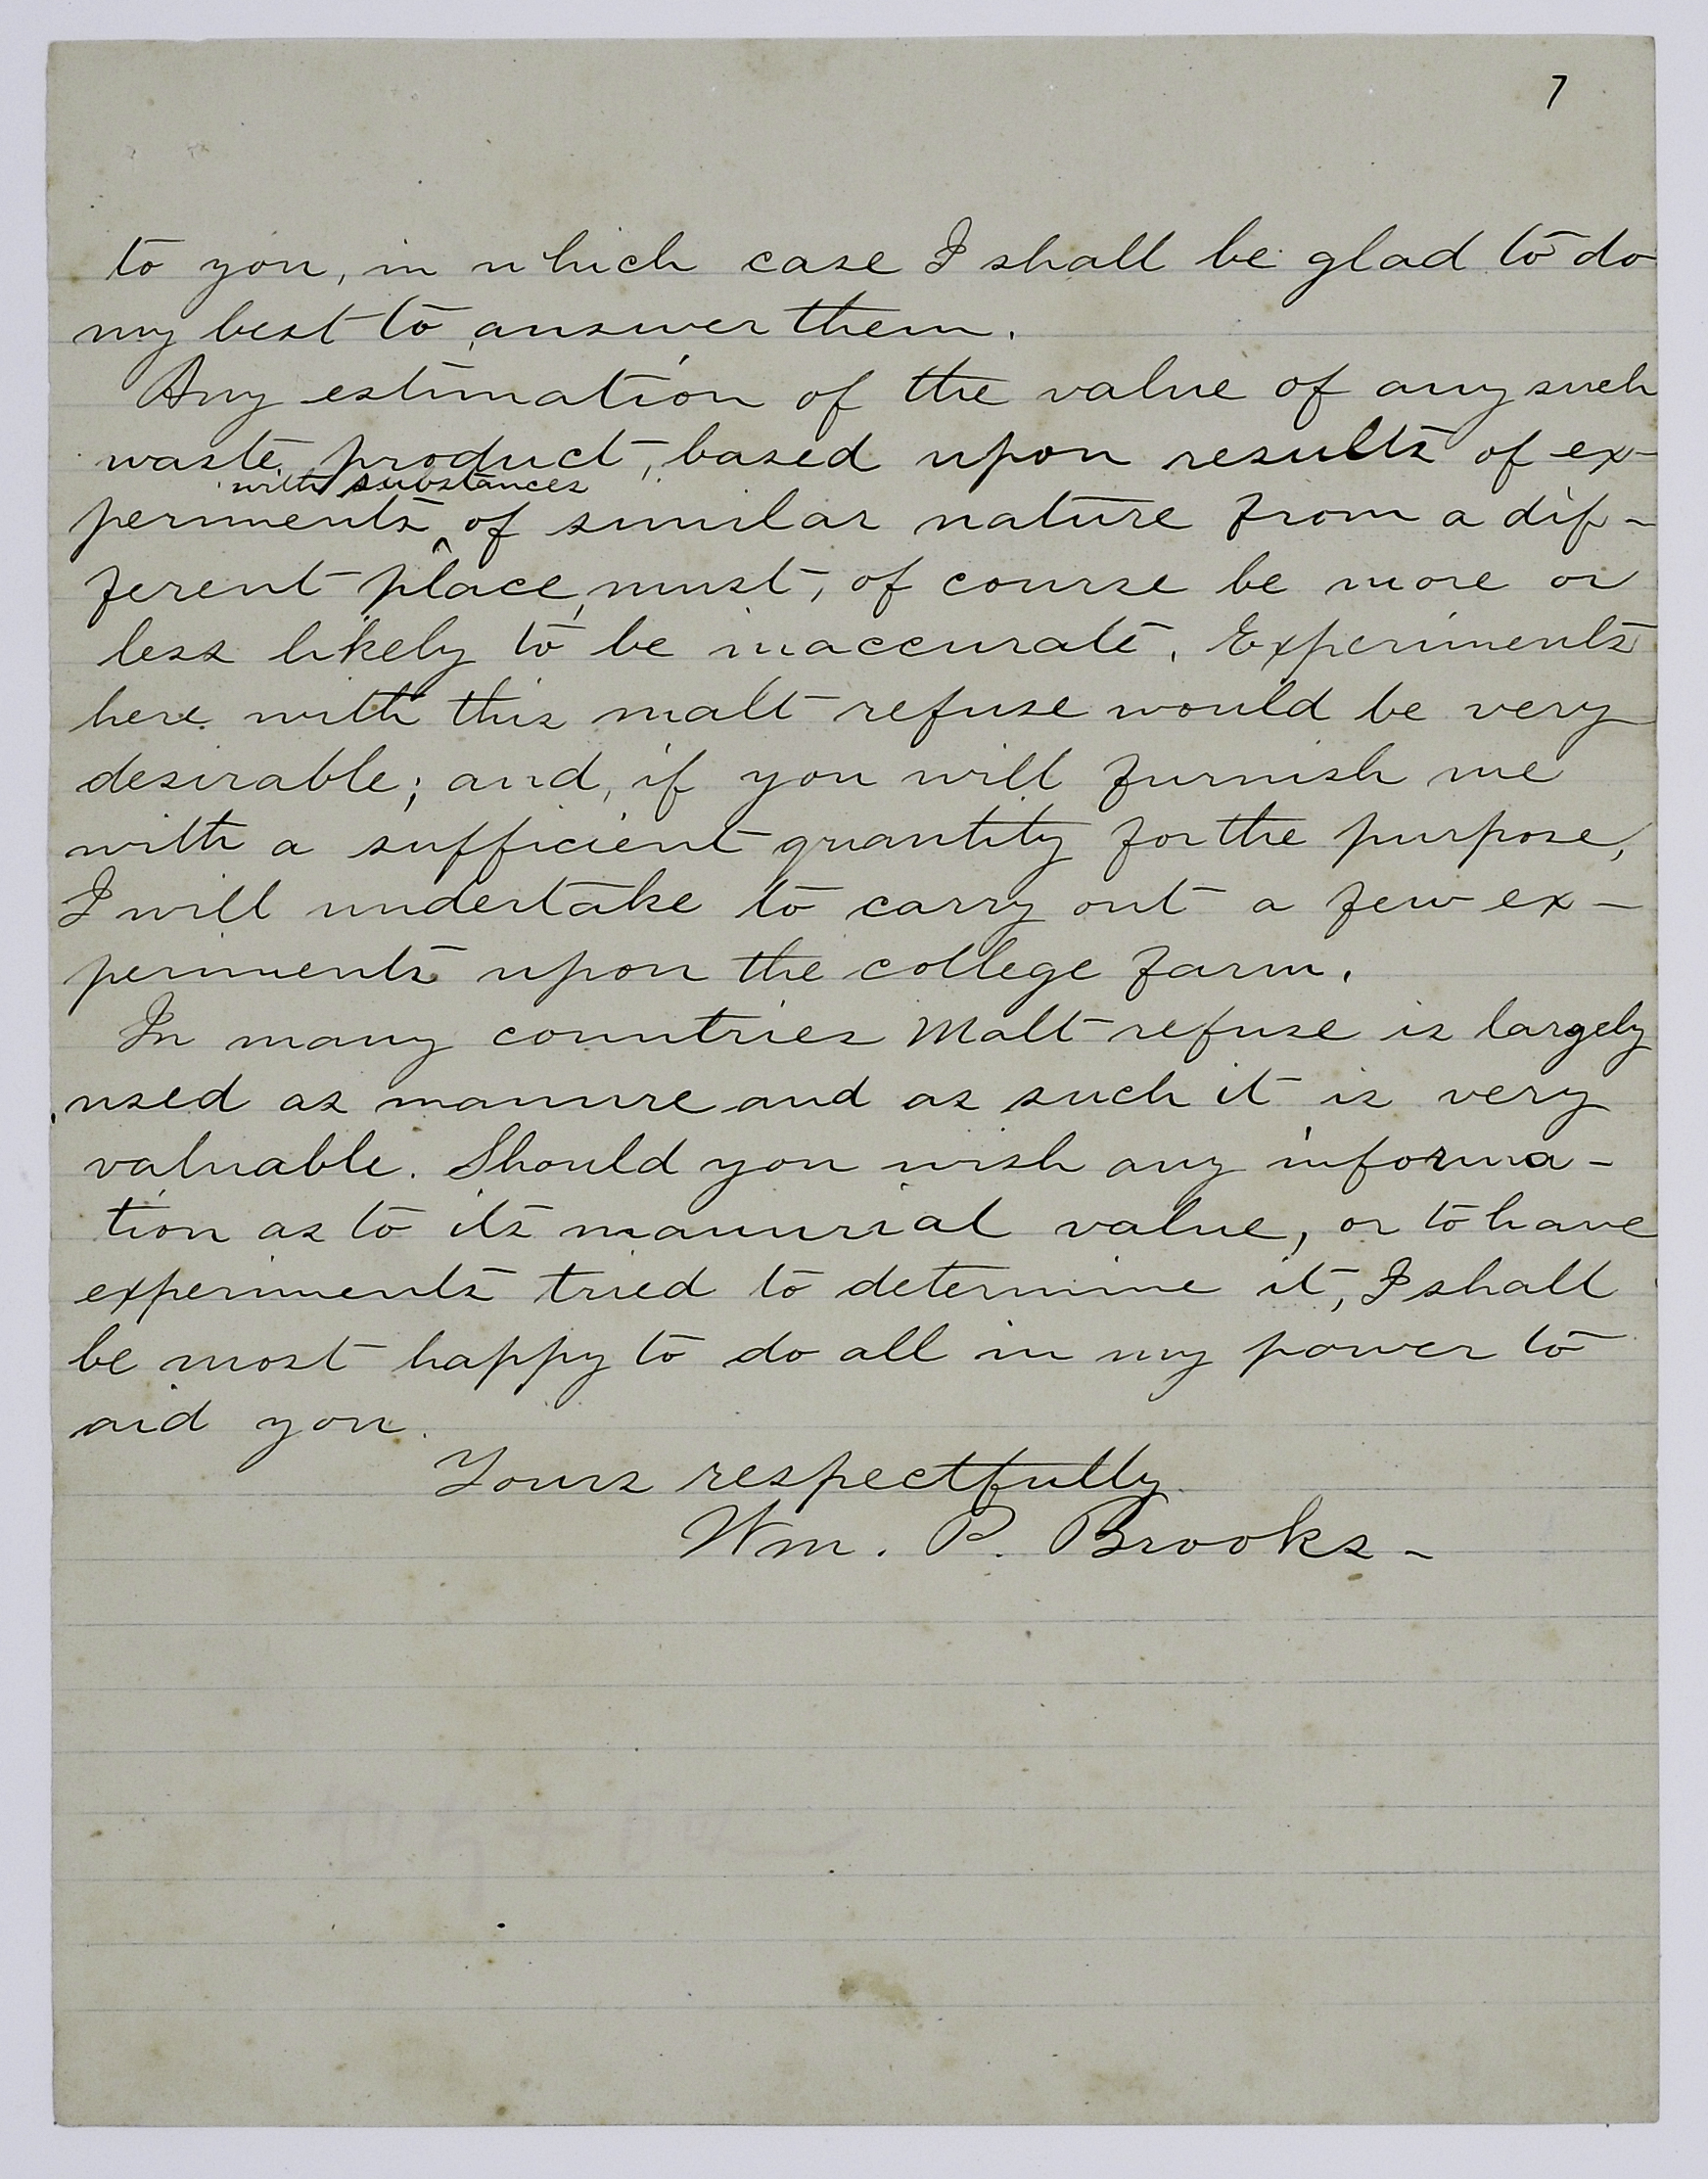 7
to you, in which case I shall be glad to do
my best to answer them.
Any estimation of the value of any such
waste product, based upon results of ex-
with substances
periments ^ of similar nature from a dif-
ferent place, must, of course be more or
less likely to be inaccurate. Experiments
here with this malt refuse would be very
desirable; and, if you will furnish me
with a sufficient quantity for the purpose,
I will undertake to carry out a few ex-
periments upon the college farm.
In many countries Malt refuse is largely
used as manure and as such it is very
valuable. Should you wish any informa-
tion as to its manurial value, or to have
experiments tried to determine it, I shall
be most happy to do all in my power to
aid you.
Yours respectfully
Wm. P. Brooks-